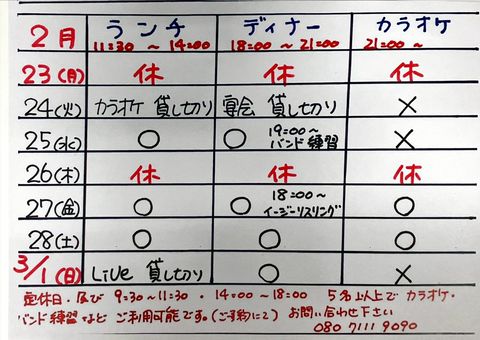 2月 ランチ 11:30 ~ 14:00 ディナー 18:00 ~ 21:00 カラオケ 21:00 ~
23(月) 休 休 休
24(火) カラオケ 貸し切り 宴会 貸し切り ×
25(水) ○ ○ 19:00~ バンド練習 ×
26(木) 休 休 休
27(金) ○ ○ 18:00~ イージーリスリング ○
28(土) ○ ○ ○
3/1(日) Live 貸し切り ○ ×
定休日・及び 9:30~11:30 ・ 14:00~18:00 5名以上で カラオケ・
バンド練習など ご利用可能です。(ご予約にて) お問い合わせ下さい
080 7111 9090